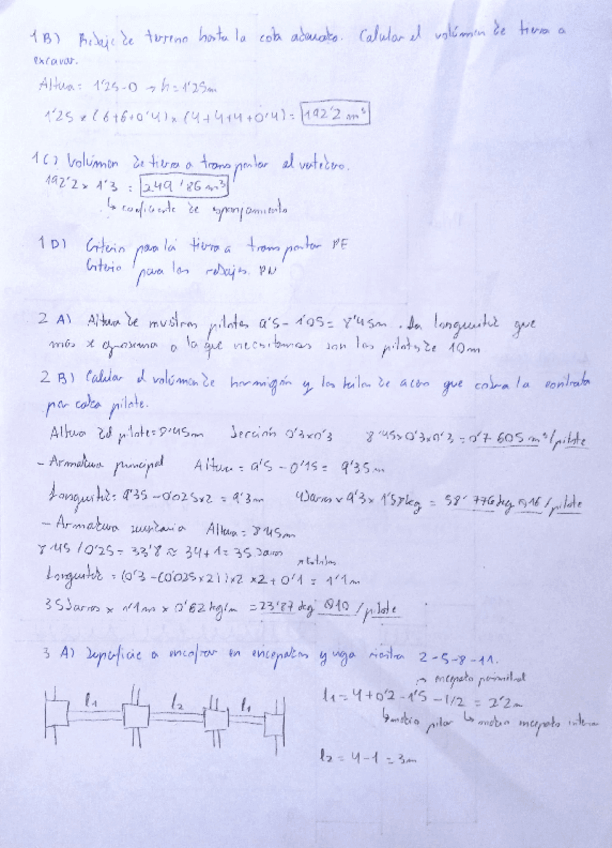 1B) Rebaje de terreno hasta la cota adecuada. Calcular el volúmen de tierra a
excavar.
Altura: 1'25-0 → h = 1'25m
1'25 × (6+6+0'4) × (4+4+4+0'4) = 192'2 m³
1C) Volúmen de tierra a transportar al vertedero.
192'2 × 1'3 = 249'86 m³
↳ coeficiente de esponjamiento
1D) Criterio para la tierra a transportar PE
Criterio para los rebajes. PN
2 A) Altura de nuestros pilotes 9'5 - 1'05 = 8'45m. La longuitud que
más se aproxima a la que necesitamos son los pilotes de 10m
2 B) Calcular el volúmen de hormigón y los kilos de acero que cobra la contrata
por cada pilote.
Altura del pilote = 8'45m Sección 0'3×0'3 8'45×0'3×0'3 = 0'7605 m³/pilote
- Armatura principal Altura = 9'5 - 0'15 = 9'35m
Longuitud: 9'35 - 0'025×2 = 9'3m 4 barras × 9'3 × 1'58kg = 58'776kg Ø16/pilote
- Armatura secundaria Altura = 8'45m
8'45/0'25 = 33'8 ≈ 34+1 = 35 barras
Longuitud = (0'3 - (0'025×2))×2 ×2 + 0'1 = 1'1m
35 barras × 1'1m × 0'62 kg/m = 23'87 kg Ø10/pilote
3 A) Superficie a encofrar en encepados y viga riostra 2-5-8-11.
→ encepado perimetral
l1 l2 l1
l1 = 4+0'2-1'5-1/2 = 2'2m
↳ medio pilar ↳ medio encepado interior
l2 = 4-1 = 3m